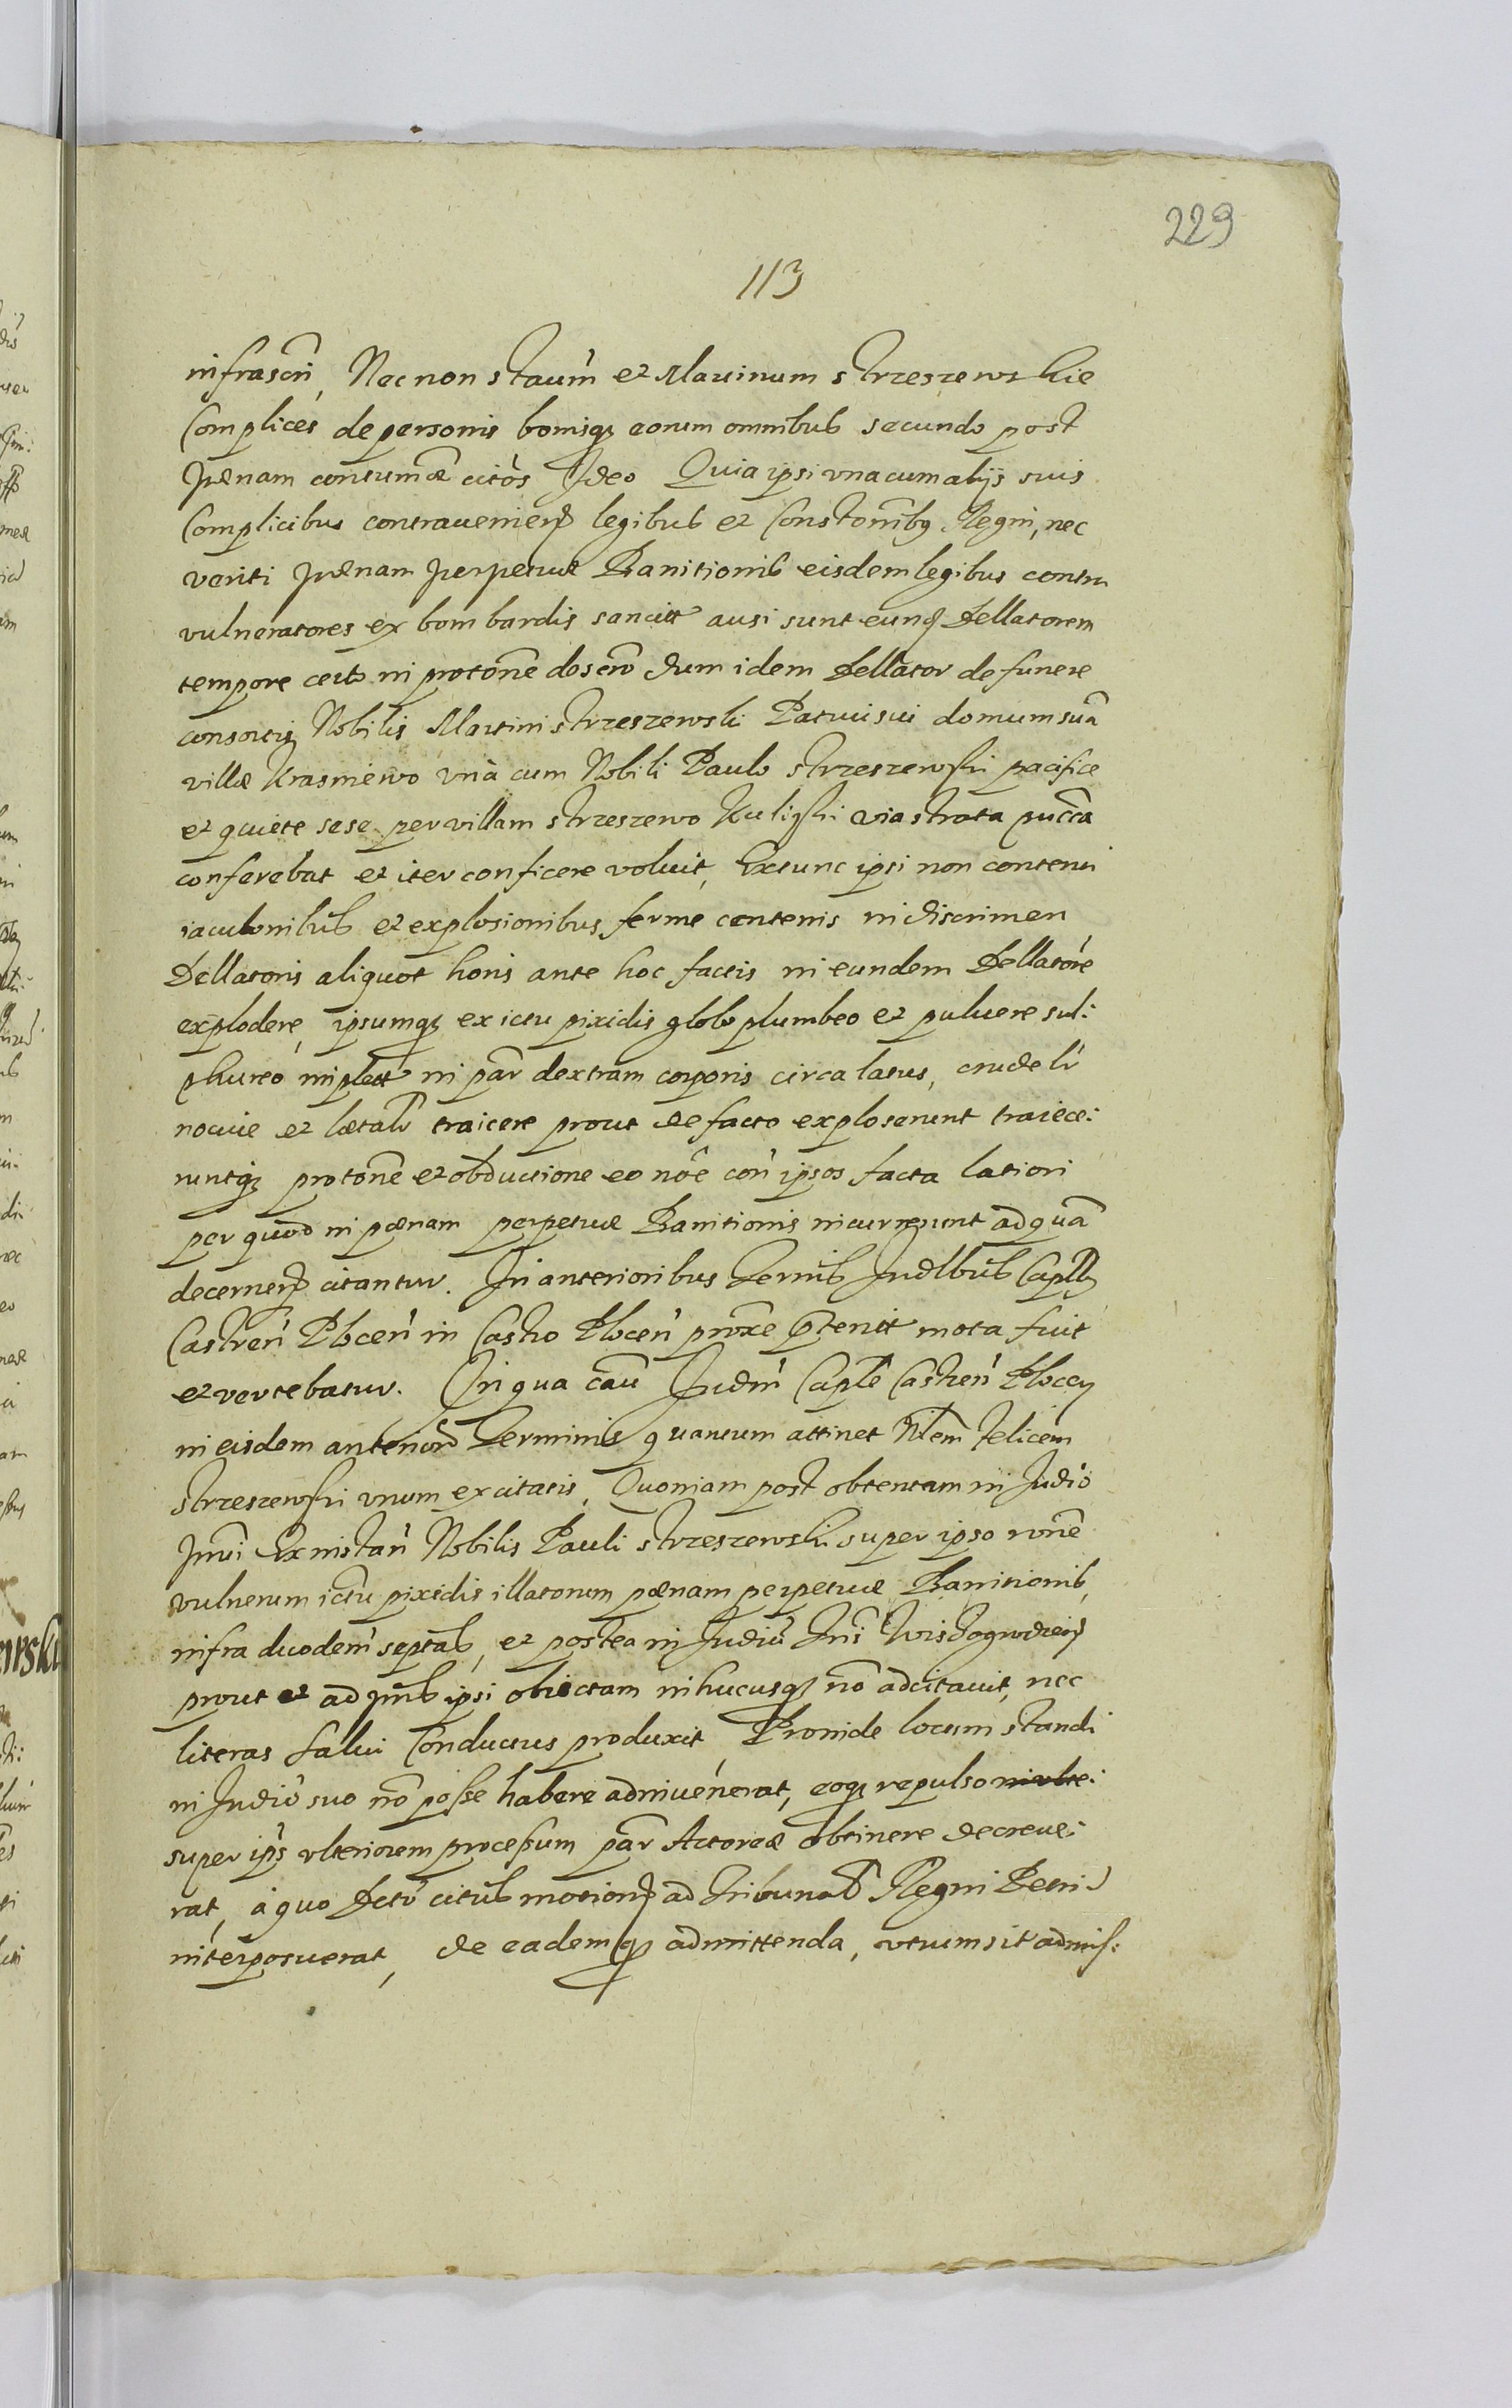 229
113
infrascri, Nec non staum et Martinum strzeszewskie
Complices de personis bonisq eorum omnibus secundo post
pœnam contumæ citos Ideo Quia ipsi vna cum alijs suis
Complicibus contrauenien legibus et Constonibq Regni, nec
veriti pœnam perpetuæ Banitionis eisdem legibus contra
vulneratores ex bombardis sancitt ausi sunt eund Dellatorem
tempore certo in protone doscro dum idem Dellator de funere
consortis Nobilis Martini strzeszewski Patrui sui domum suā
villæ Krasniewo vnà cum Nobili Paulo strzeszewski pacifice
et quiete sese per villam strzeszewo Kuligki via strata puca
conferebat et iter conficere voluit, Extunc ipsi non contenti
iaculonibus et explosionibus ferme centenis in discrimen
Dellatoris aliquot horis ante hoc factis in eundem Dellatore
explodere, ipsumq ex ictu pixidis globo plumbeo et puluere sul:
phureo implett in par dextram corporis circa latus, crudelr
nociue et lætalr traicere prout de facto exploserunt traiece:
runtq protone et obductione eo noe con ipsos facta latiori
per quod in pœnam perpetuæ Banitionis incurrerunt ad quā
decernen citantur. In anterioribus Termis Judlbus Caplbq
Castren Plocen in Castro Plocen proxe pterit mota fuit
et vertebatur. In qua cau Judm Caple Castren Plocen
in eisdem anterior Terminis quantum attinet Nlem Felicem
strzeszewski vnum ex citatis, Quoniam post obtentam in Judio
pnti Ex instan Nobilis Pauli strzeszewski super ipso rone
vulnerum ictu pixidis illatorum pœnam perpetuæ Banitionis
infra duodem septas, et postea in Judio
prout et ad pns ipsi obiectam in hucusq no adcitauit, nec
literas salui Conductus produxit, Proinde locum standi
in Judio suo no posse habere adinuenerat, eoq repulso
super ips vlteriorem processum par Actoreæ obtinere decreue:
rat, a quo Dcto citus motion ad Tribunal Regni Petri
interposuerat, de eademq admittenda, vtrum sit admis: